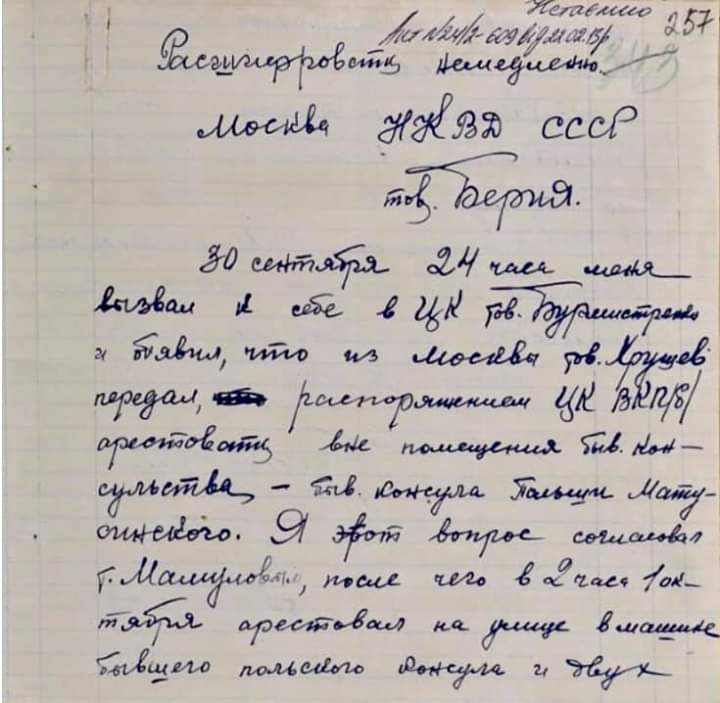 257
Расшифровать немедленно.
Москва НКВД СССР
тов. Берия.
30 сентября 24 часа меня
вызвал к себе в ЦК тов. Бурмистренко
и объявил, что из Москвы тов. Хрущев
передал, распоряжением ЦК ВКП/б/
арестовать вне помещения быв. кон-
сульства, – быв. консула Польши Мату-
синского. Я этот вопрос согласовал
т. Мамуловым, после чего в 2 часа 1 ок-
тября арестовал на улице в машине
бывшего польского консула и двух